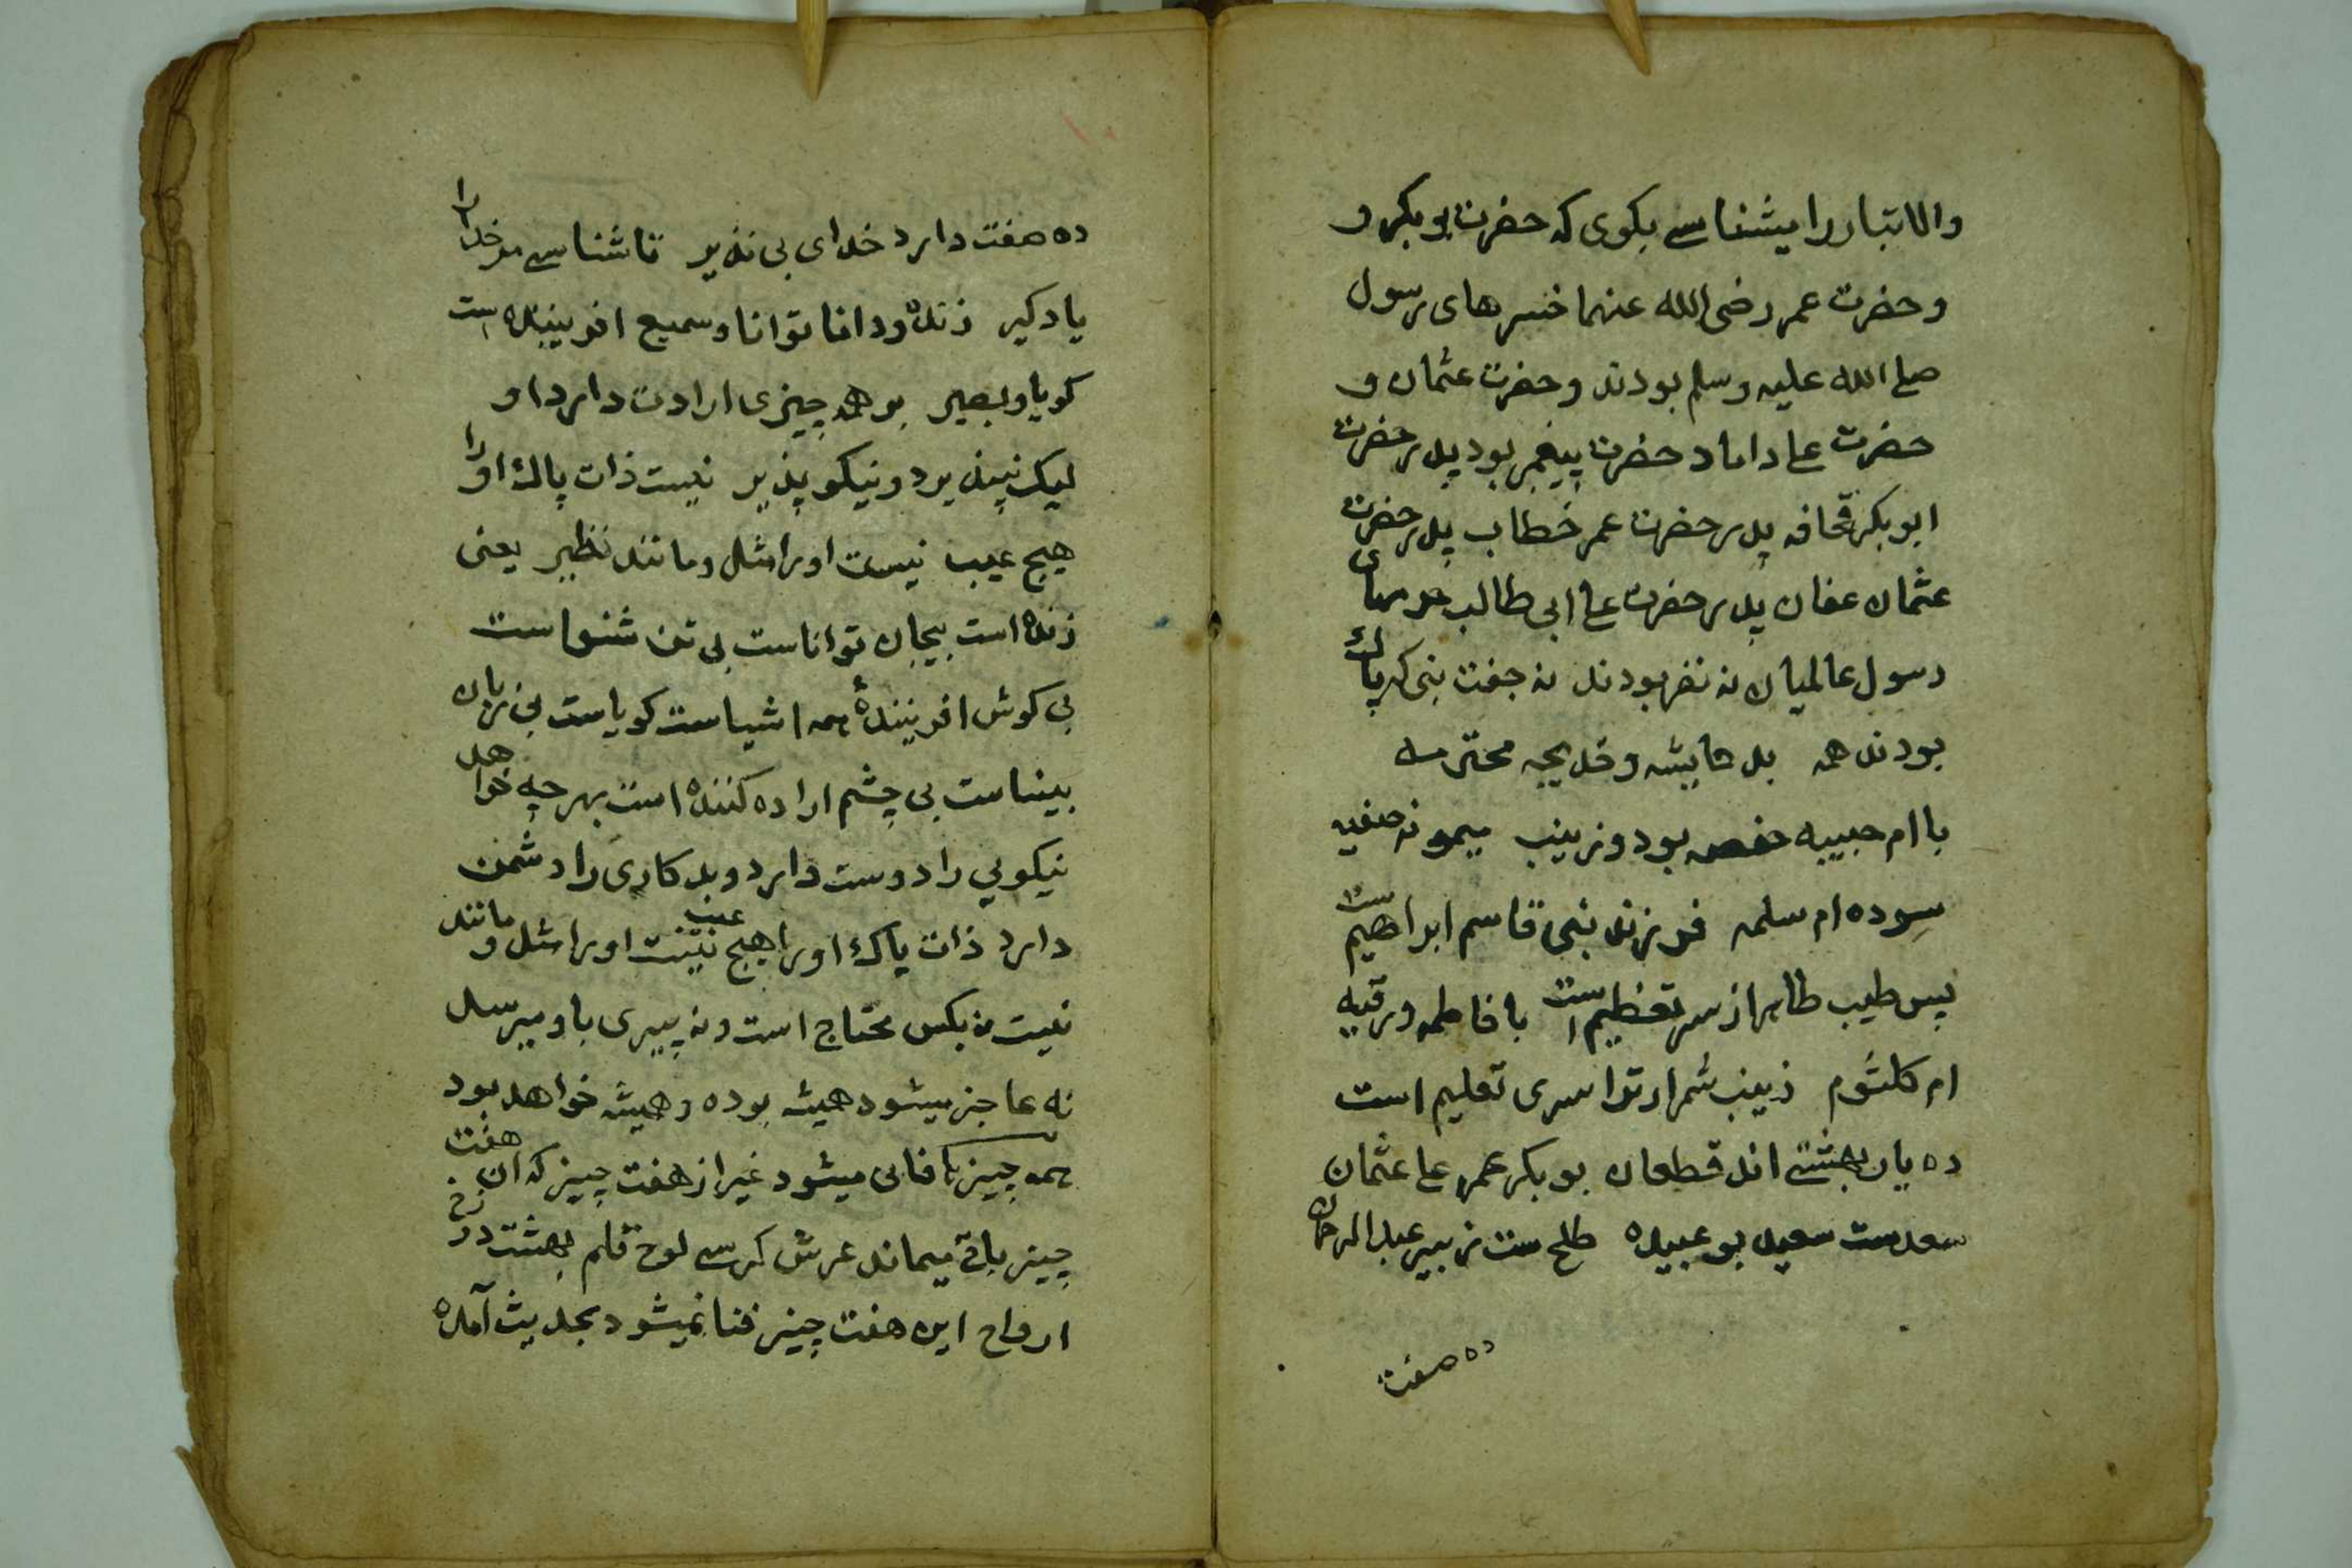 والاتبار را میشناسے بکوی که حضرت بوبکر و
و حضرت عمر رضی الله عنهما خسرهای رسول
صلے الله علیه وسلم بودند و حضرت عثمان و
حضرت علے داماد حضرت پیغمبر بود پدر حضرت
ابوبکر قحافه پدر حضرت عمر خطاب پدر حضرت
عثمان عفان پدر حضرت علے ابی طالب حرمهای
رسول عالمیان نه نفر بودند نه جفت نبی که پاک
بودند همه بد عایشه و خدیجه محترمه
با ام حبیبه حفصه بود و زینب میمونه صفیه
سوده ام سلمه فرزند نبی قاسم ابراهیم است
پس طیب طاهر از سر تعظیم است با فاطمه و رقیه
ام کلثوم زینب شمر ار ترا سری تعلیم است
ده یار بهشتے اند قطعان بوبکر عمر علے عثمان
سعدست سعید بوعبیده طلح ست زبیر عبدالرحمان
ده صفت
ده صفت دارد خدای بی نذیر تا شناسے مر خدا را
یادکیر زنده و دانا توانا و سمیع افریننده است
کویا و بصیر بر همه چیزی ارادت دارد او
لیک نپذیرد و نیکو پذیر نیست ذات پاک او را
هیچ عیب نیست او را مثل و مانند نظیر یعنی
زنده است بیجان تواناست بی تن شنواست
بی کوش افریننده همه اشیاست کویاست بی زبان
بیناست بی چشم اراده کننده است بهر چه خواهد
نیکویی را دوست دارد و بدکاری را دشمن
دارد ذات پاک او را هیچ عیب نیست او را مثل و مانند
نیست نه بکس محتاج است و نه پیری باو میرسد
نه عاجز میشود همیشه بوده و همیشه خواهد بود
همه چیزها فانی میشود غیر از هفت چیز که ان هفت
چیز باقے میماند عرش کرسے لوح قلم بهشت دوزخ
ارواح این هفت چیز فنا نمیشود بحدیث آمده